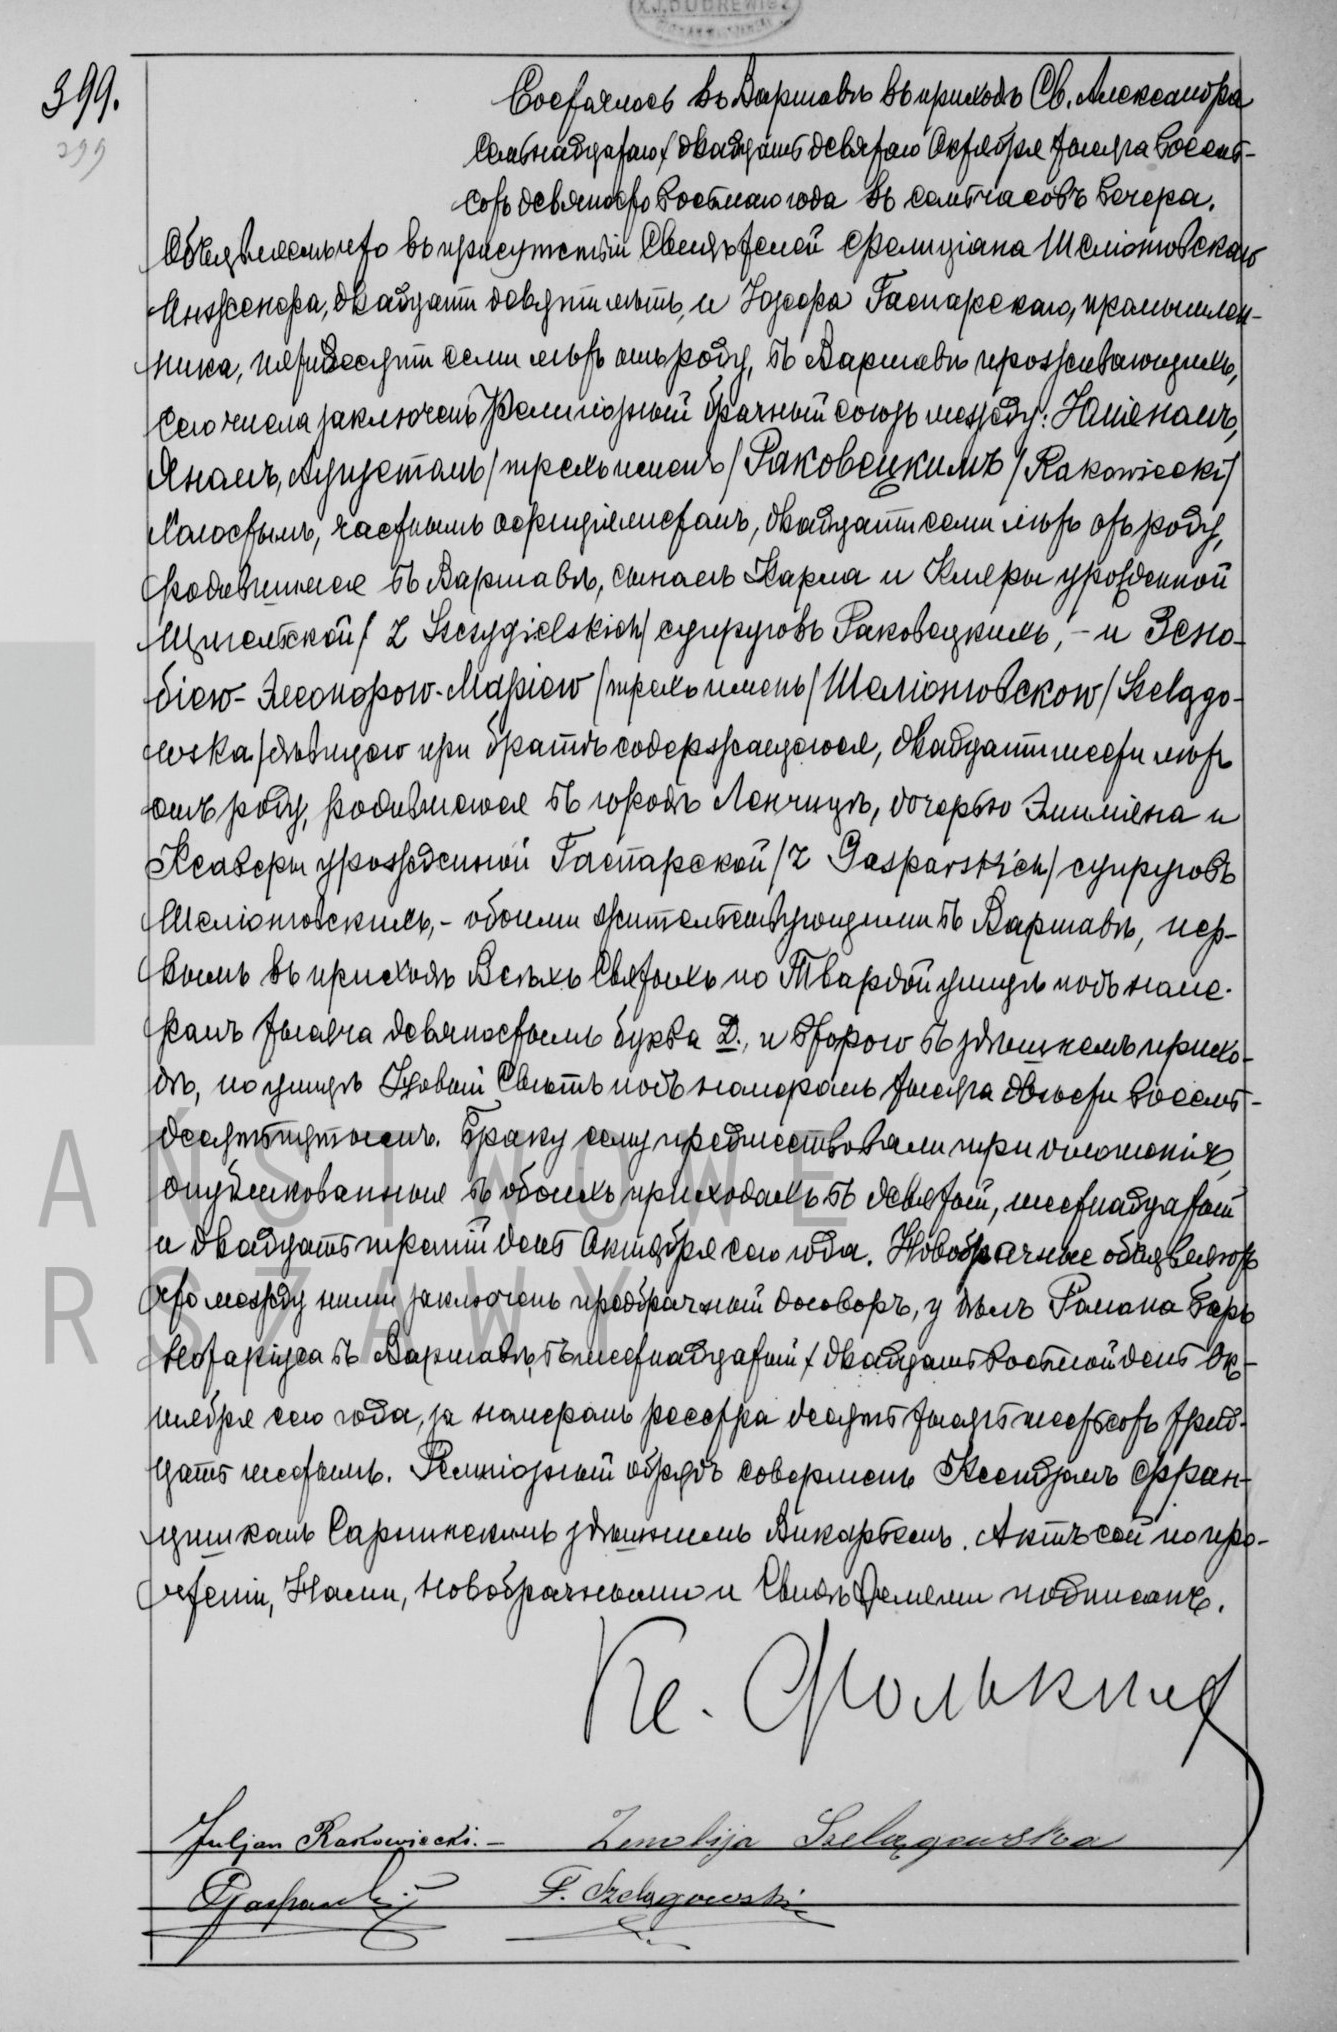 X.J.DUDREWICZ
399.
299
Состоялось въ Варшавѣ въ приходѣ Св. Александра
Семьнадцатаго / двадцать девятаго Октября тысяча восемь-
сотъ девяносто восьмаго года въ семь часовъ вечера.
Объявляемъ что въ присутствіи Свидѣтелей Фелиціана Шеліонговскаго
Инженера, двадцати девяти лѣтъ, и Юзефа Гаспарскаго, промышлен-
ника, пятидесяти семи лѣтъ отъ роду, въ Варшавѣ проживающихъ,
сего числа заключенъ Религіозный брачный союзъ между: Юліеномъ,
Яномъ, Аугустомъ / трехъ именъ / Раковецкимъ / Rakowiecki /
холостымъ, частнымъ оффиціялистомъ, двадцати семи лѣтъ отъ роду,
родившимся въ Варшавѣ, сыномъ Кароля и Клеры урожденной
Щигельской / z Szczygielskich / супруговъ Раковецкихъ, - и Зено-
біею - Элеонорою - Маріею / трехъ именъ / Шеліонговскою / Szelągo-
wska / дѣвицею при братѣ содержащеюся, двадцати шести лѣтъ
отъ роду, родившеюся въ городѣ Ленчицѣ, дочерью Эмиліяна и
Ксаверы урожденной Гаспарской / z Gasparskich / супруговъ
Шеліонговскихъ, - обоими жительствующими въ Варшавѣ, пер-
вымъ въ приходѣ Всѣхъ Святыхъ по Твардой улицѣ подъ номе-
ромъ тысяча девяностымъ буква D., и второю въ здѣшнемъ прихо-
дѣ, по улицѣ Новый Свѣтъ подъ номеромъ тысяча двѣсти восемь-
десятъ пятымъ. Браку сему предшествовали три оглашенія,
опубликованныя въ обоихъ приходахъ въ девятый, шестнадцатый
и двадцать третій день Октября сего года. Новобрачные объявляютъ
что между ними заключенъ предбрачный договоръ, у дѣлъ Романа Баръ
Нотаріуса въ Варшавѣ, въ шестнадцатый / двадцать восьмой день Ок-
тября сего года, за номеромъ реестра десять тысячъ шестьсотъ трид-
цать шестымъ. Религіозный обрядъ совершенъ Ксендзомъ Фран-
цишкомъ Сарпинскимъ здѣшнимъ Викаріемъ. Актъ сей по про-
чтеніи, Нами, новобрачными и Свидѣтелями подписанъ.
Кс.
Juljan Rakowiecki. - Zenobija Szelągowska
JGasparski F. Szelągowski
AŃSTWOWE
RSZAWY